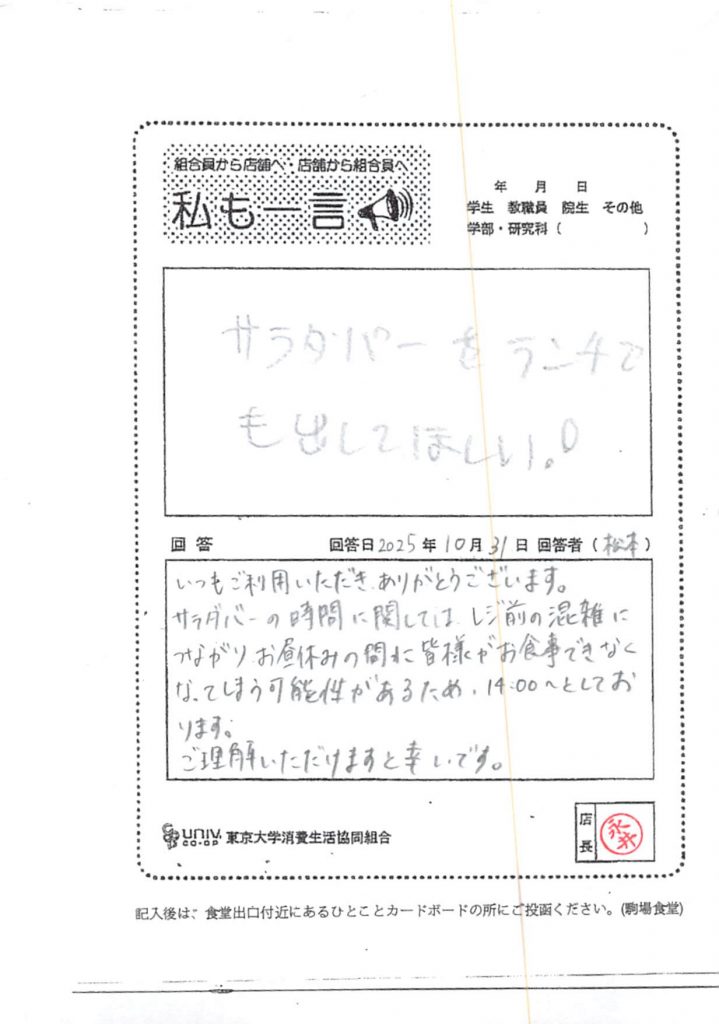 組合員から店舗へ・店舗から組合員へ
私も一言
年 月 日
学生 教職員 院生 その他
学部・研究科( )
サラダバーをランチで
も出してほしい。
回答 回答日2025年10月31日 回答者(松本)
いつもご利用いただき、ありがとうございます。
サラダバーの時間に関しては、レジ前の混雑に
つながり、お昼休みの間に皆様がお食事できなく
なってしまう可能性があるため、14:00〜としてお
ります。
ご理解いただけますと幸いです。
UNIV. CO-OP 東京大学消費生活協同組合
店長
記入後は、食堂出口付近にあるひとことカードボードの所にご投函ください。(駒場食堂)